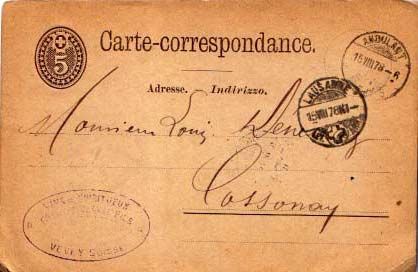 5
Carte-correspondance.
AMBULANT
15 VIII 78 - 6
Adresse. Indirizzo.
LAUSANNE
15 VIII 78
Monsieur Louis
Cossonay
VINS & SPIRITUEUX
VEVEY SUISSE